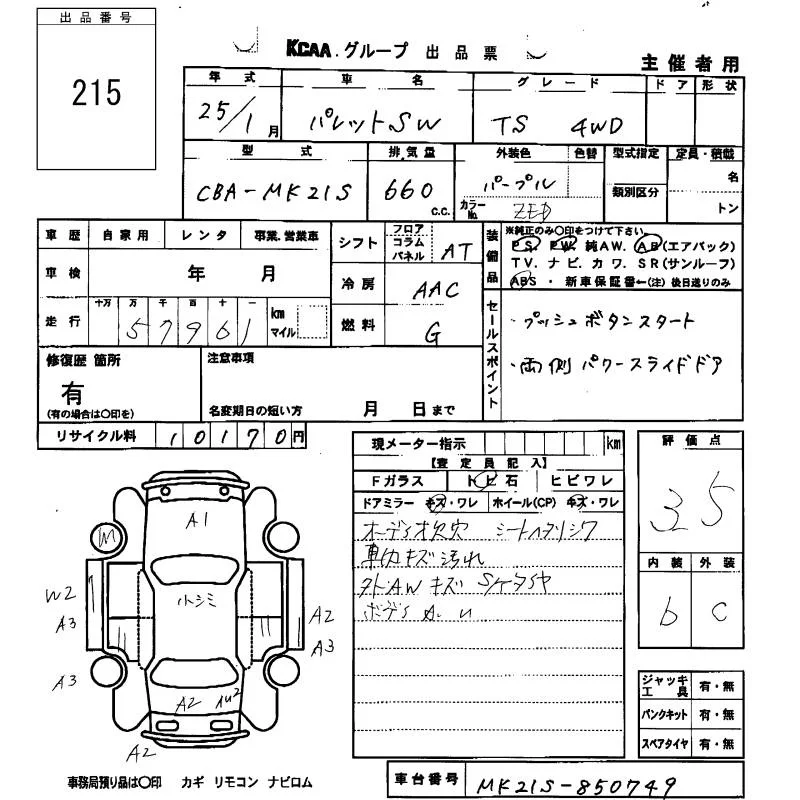 出品番号
215
KCAA.グループ 出品票
主催者用
年式 車名 グレード ドア 形状
25/1月 パレットSW TS 4WD
型式 排気量 外装色 色替 型式指定 定員・積載
CBA-MK21S 660 c.c. パープル 類別区分 名
カラーNo. ZED トン
車歴 自家用 レンタ 事業.営業車
シフト フロア コラム パネル AT
車検 年 月
冷房 AAC
走行 十万 万 千 百 十 一
57961 km マイル
燃料 G
装備品
※純正のみ○印をつけて下さい。
PS. PW. 純AW. AB(エアバック)
TV. ナビ. カワ. SR(サンルーフ)
ABS ・ 新車保証書←(注)後日送りのみ
セールスポイント
・プッシュボタンスタート
・両側パワースライドドア
修復歴 箇所
有
(有の場合は○印を)
注意事項
名変期日の短い方 月 日まで
リサイクル料 10170円
現メーター指示 km
【査定員記入】
Fガラス トビ石 ヒビワレ
ドアミラー キズ・ワレ ホイール(CP) キズ・ワレ
オーディオ欠穴 シートヘタリシワ
車内キズ汚れ
外AWキズ Sケタイヤ
評価点
3.5
内装 外装
b C
ジャッキ工具 有・無
パンクキット 有・無
スペアタイヤ 有・無
A1
W2
A3
A2
A3
A3
A2
A2
事務局預り品は○印 カギ リモコン ナビロム
車台番号 MK21S-850749